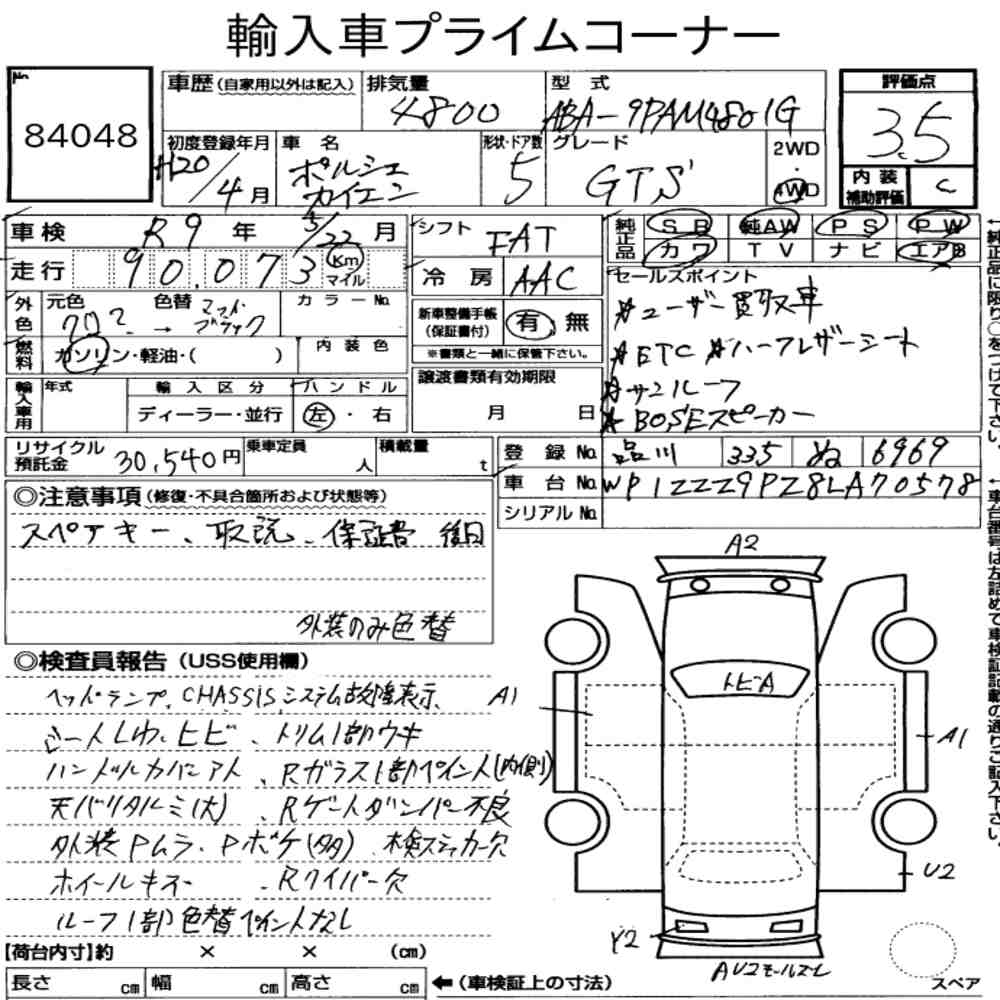 輸入車プライムコーナー
No. 84048
車歴 (自家用以外は記入)
排気量 4800
型式 ABA-9PAM4801G
評価点 3.5
内装補助評価 C
初度登録年月 H20/4月
車名 ポルシェ カイエン
形状・ドア数 5
グレード GTS
2WD
4WD
車検 R9年 5/22月
走行 90,073 Km マイル
シフト FAT
冷房 AAC
純正品 SR 純AW PS PW
カワ TV ナビ エアB
外色 元色 クロ2 → 色替 マットブラック
カラーNo.
燃料 ガソリン・軽油・( )
内装色
新車整備手帳(保証書付) 有 無
※書類と一緒に保管下さい。
セールスポイント
※ユーザー買取車
※ETC ※ハーフレザーシート
※サンルーフ
※BOSEスピーカー
輸入車用 年式
輸入区分 ディーラー・並行
ハンドル 左・右
譲渡書類有効期限
月 日
リサイクル預託金 30,540円
乗車定員 人
積載量 t
登録No. 品川 335 ぬ 6969
車台No. WP1ZZZ9PZ8LA70578
シリアルNo.
◎注意事項(修復・不具合箇所および状態等)
スペアキー、取説、保証書 後日
外装のみ色替
◎検査員報告(USS使用欄)
ヘッドランプ、CHASSISシステム故障表示
シートしわ、ヒビ・トリム1部ウキ
ハンドルカバーアト、Rガラス1部ペイント(内側)
天バリタルミ(大) Rゲートダンパー不良
外装Pムラ、Pボケ(多) 木検ステッカー欠
ホイールキズ・Rワイパー欠
ルーフ1部色替ペイントなし
A2
トビーA
A1
A1
U2
Y2
AU2モールズーレ
スペア
【荷台内寸】約 × × (cm)
長さ cm 幅 cm 高さ cm
←(車検証上の寸法)
←純正品に限り○をつけて下さい。
←車台番号は左詰めで車検証記載の通りご記入下さい。